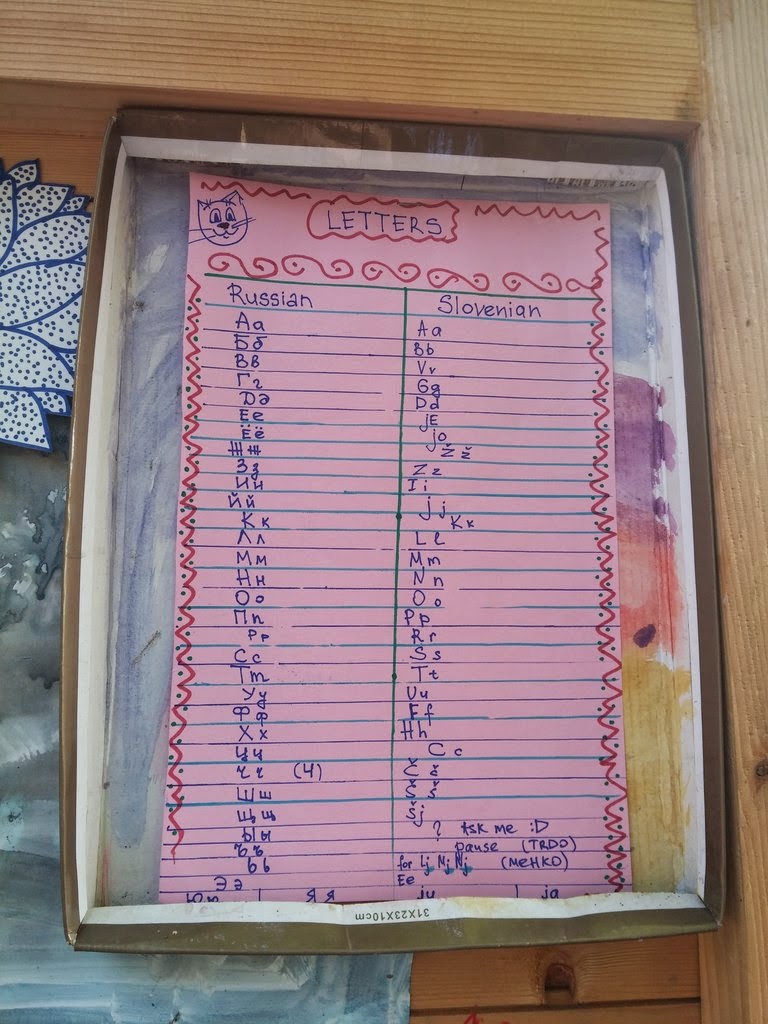 LETTERS
Russian Slovenian
Аа Aa
Бб Bb
Вв Vv
Гг Gg
Дд Dd
Ее jE
Ёё jo
Жж Žž
Зз Zz
Ии Ii
Йй Jj
Кк Kk
Лл Ll
Мм Mm
Нн Nn
Оо Oo
Пп Pp
Рр Rr
Сс Ss
Тт Tt
Уу Uu
Фф Ff
Хх Hh
Цц Cc
Чч (Ч) Čč
Шш Šš
Щщ šj
Ыы ? ask me :D
Ъъ pause (TRDO)
ЬЬ for Lj Nj (MEHKO)
Ээ Ee
Юю Яя ju ja
31X23X10cm